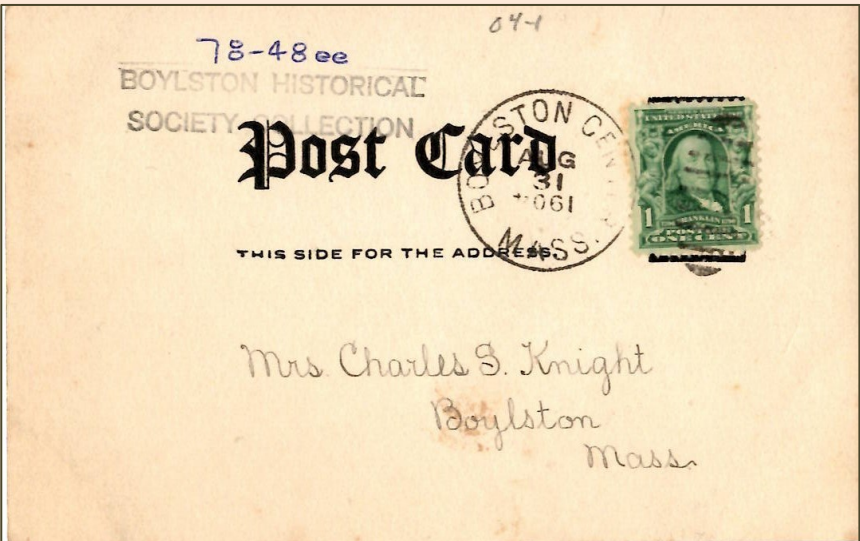 04-1
78-48ee
BOYLSTON HISTORICAL
SOCIETY COLLECTION
Post Card
BOYLSTON CENTER
AUG
31
1061
MASS.
UNITED STATES OF
AMERICA
1 FRANKLIN 1
POSTAGE
ONE CENT
THIS SIDE FOR THE ADDRESS.
Mrs. Charles S. Knight
Boylston
Mass.